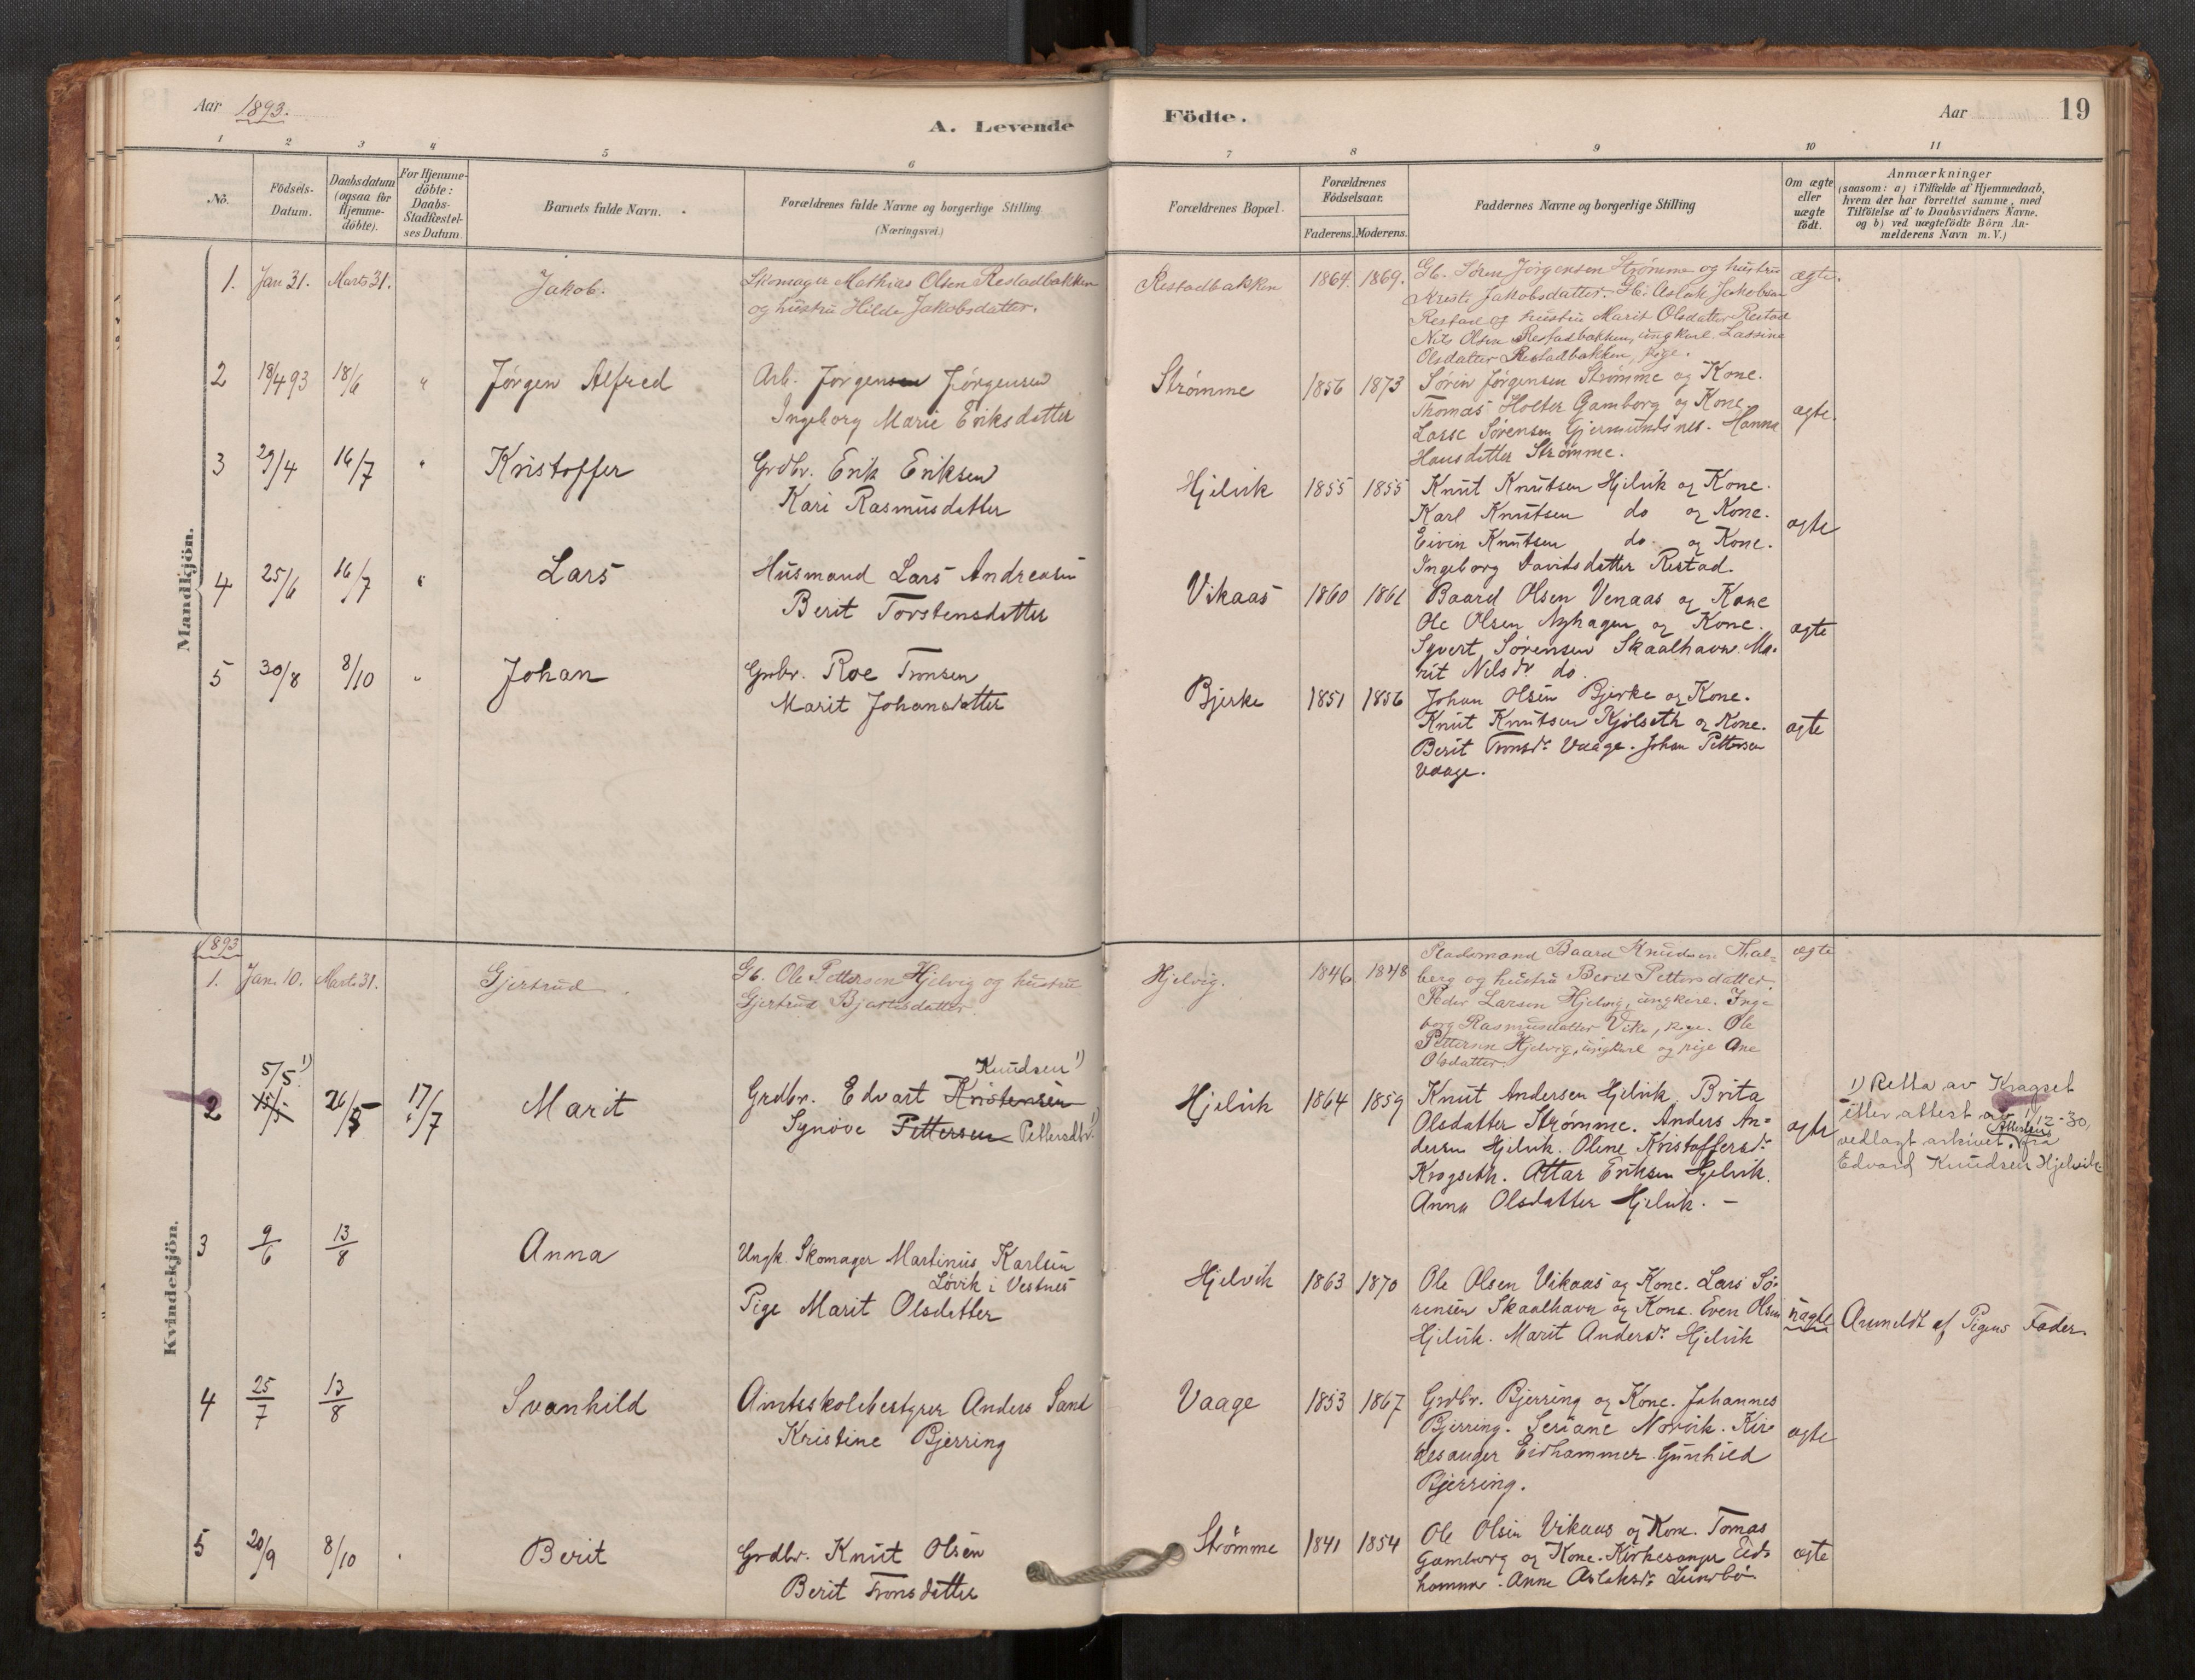 Aar 1893.
A. Levende
Födte.
Aar
19
1 2 3 4 5 6 7 8 9 10 11
No.
Födsels-
Datum.
Daabsdatum
(ogsaa for
Hjemme-
döbte).
For Hjemme-
döbte:
Daabs-
Stadfæstel-
ses Datum.
Barnets fulde Navn.
Forældrenes fulde Navne og borgerlige Stilling
(Næringsvei.)
Forældrenes Bopæl.
Forældrenes
Födselsaar.
Faderens. Moderens.
Faddernes Navne og borgerlige Stilling
Om ægte
eller
uægte
födt.
Anmærkninger
(saasom: a) i Tilfælde af Hjemmedaab,
hvem der har forrettet samme, med
Tilföielse af to Daabsvidners Navne,
og b) ved uægtefödte Börn An-
melderens Navn m. V.)
Mandkjön.
1. Jan 31. Marts 31. Jakob.
Skomager Mathias Olsen Restadbakken
og hustru Hilde Jakobsdatter.
Restadbakken 1864. 1869.
Gb. Søren Jørgensen Strømme og hustru
Kirsti Jakobsdatter. Gb. Aslak Jakobsen
Restad og hustru Marit Olsdatter Restad
Nils Olsen Restadbakken, ungkarl. Lassine
Olsdatter Restadbakken, pige.
ægte.
2 18/4 93 18/6 " Jørgen Alfred
Arb. Jørgensen Jørgensen
Ingeborg Marie Eriksdatter
Strømme 1856 1873
Sørin Jørgensen Strømme og Kone.
Thomas Holter Gamborg og Kone.
Lasse Sørensen Gjermundsnes. Hanna
Hansdatter Strømme.
ægte.
3 29/4 16/7 " Kristoffer
Grdbr. Erik Eriksen
Kari Rasmusdatter
Hjelvik 1855 1855
Knut Knutsen Hjelvik og Kone.
Karl Knutsen do og Kone.
Eivin Knutsen do. og Kone.
Ingeborg Davidsdatter Restad.
ægte
4 25/6 16/7 " Lars
Husmand Lars Andreasen
Berit Torstensdatter
Vikaas 1860 1861
Baard Olsen Venaas og Kone
Ole Olsen Nyhagen og Kone.
Syvert Sørensen Skaalhavn. Ma-
rit Nilsdr do.
ægte
5 30/8 8/10 " Johan
Grbr. Roe Tronsen
Marit Johansdatter
Bjerke 1851 1856
Johan Olsen Bjerke og Kone.
Knut Knutsen Kjølseth og Kone.
Berit Tronsdr. Vaage. Johan Pettersen
Vaage.
ægte
Kvindekjön.
1893
1. Jan. 10. Marts 31. Gjertrud.
Gb. Ole Pettersen Hjelvig og hustru
Gjertrud Bjartesdatter.
Hjelvig. 1846 1848
Pladsmand Baard Knudsen Thal-
berg og hustru Berit Pettersdatter.
Peder Larsen Hjelvig, ungkarl. Inge
borg Rasmusdatter Vike, pige. Ole
Pettersen Hjelvig, ungkarl og pige Ane
Olsdatter.
ægte
2 5/5 1) 15/5 26/5 17/7 Marit
Knudsen 1)
Grdbr. Edvart Kristensen
Synøve Pettersen Pettersdtr. 1)
Hjelvik 1864 1859
Knut Andersen Hjelvik. Brita
Olsdatter Strømme. Anders An-
dersen Hjelvik. Oline Kristoffersdr.
Krogseth. Attar Eriksen Hjelvik.
Anna Olsdatter Hjelvik. –
ægte
1) Retta av Kragset
etter attest av 1/12-30,
vedlagt arkivet. Attesten fra
Edvard Knudsen Hjelvik
3 9/6 13/8 Anna
Ungk. Skomager Martinus Karlsen
Løvik i Vestnes
Pige Marit Olsdatter
Hjelvik 1863 1870
Ole Olsen Vikaas og Kone. Lars Sø-
rensen Skaalhavn og Kone. Even Olsen
Hjelvik. Marit Andersdr. Hjelvik
uægte
Anmeldt af Pigens Fader.
4 25/7 13/8 Svanhild
Amtsskolebestyrer Anders Sand
Kristine Bjerring
Vaage 1853 1867
Grdbr. Bjerring og Kone. Johannes
Bjerring. Seriane Norvik. Kir-
kesanger Eidhammer. Gunhild
Bjerring.
ægte
5 20/9 8/10 " Berit
Grdbr. Knut Olsen
Berit Tronsdatter
Strømme 1841 1854
Ole Olsen Vikaas og Kone. Tomas
Gamborg og Kone. Kirkesanger Eid-
hammer. Anne Aslaksdr. Lundbø.
ægte